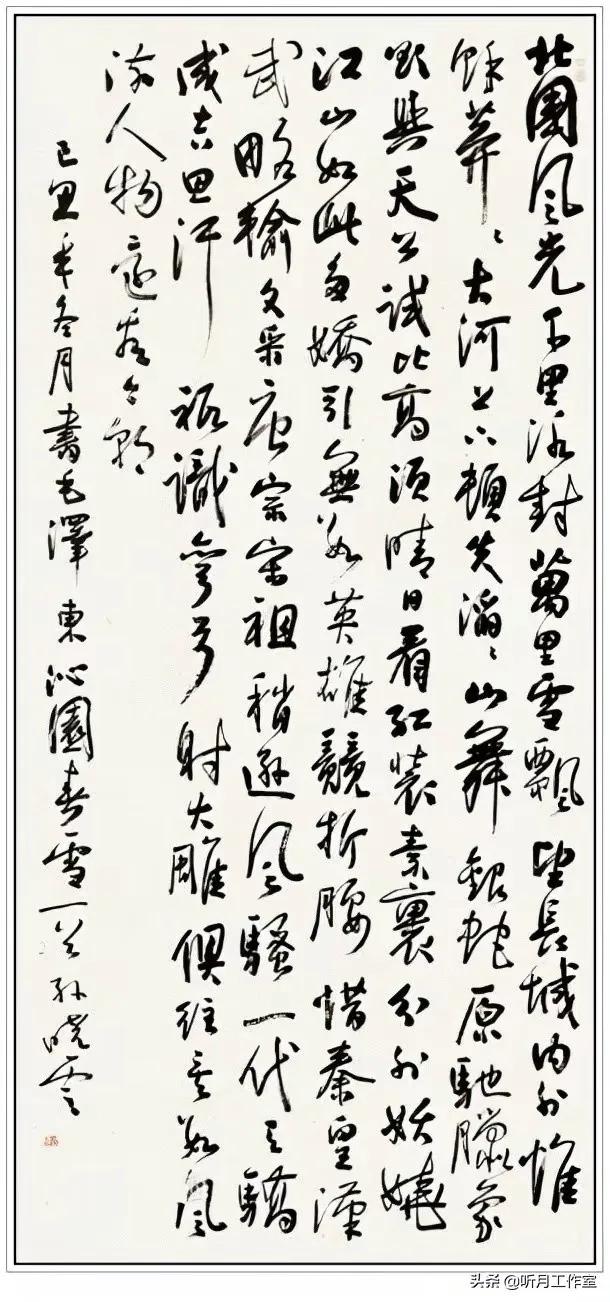 北國風光千里冰封萬里雪飄望長城内外惟
餘莽〻大河上下頓失滔〻山舞銀蛇原馳臘象
欲與天公試比高須晴日看紅裝素裹分外妖嬈
江山如此多嬌引無數英雄競折腰惜秦皇漢
武略輸文采唐宗宋祖稍遜風騷一代天驕
成吉思汗祇識彎弓射大雕俱往矣數風
流人物還看今朝
己丑年冬月書毛澤東沁園春雪一首孫曉雲
头条 @听月工作室